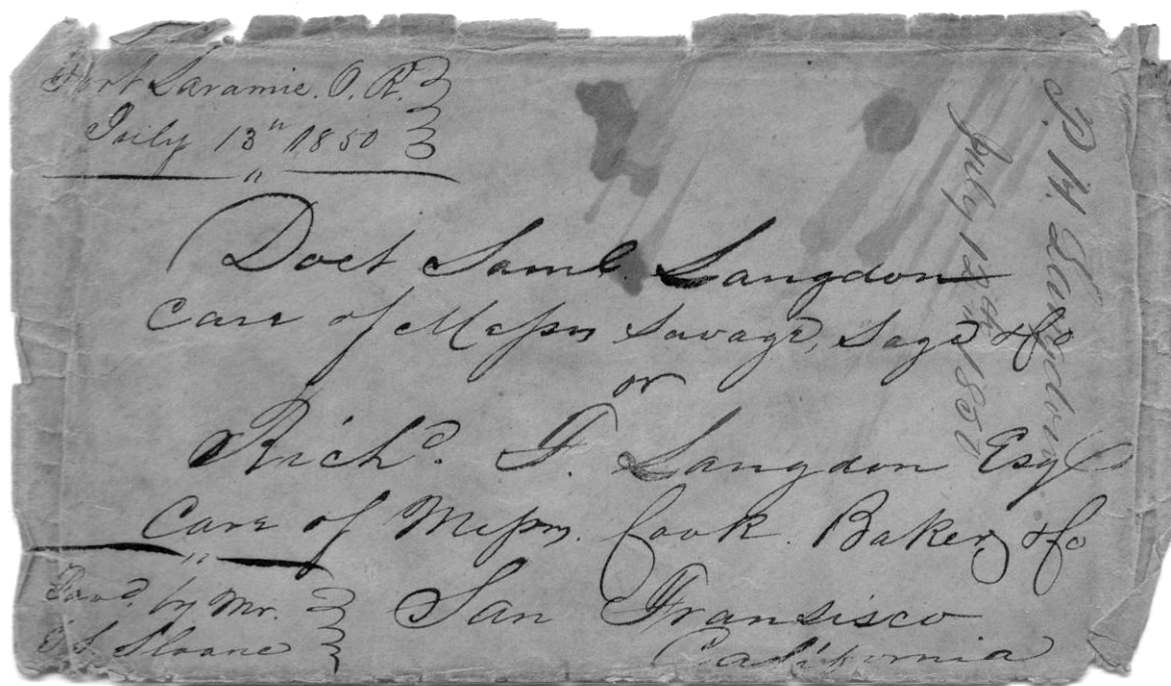 Fort Laramie. O. R.
July 13th 1850
Doct Saml. Langdon
Care of Messrs Savage, Sage & Co
or
Richd. F. Langdon Esq
Care of Messrs. Cook. Baker, & Co
San Fransisco
California
by Mr.
Sloane
P. H. Langdon
July 12th 1850